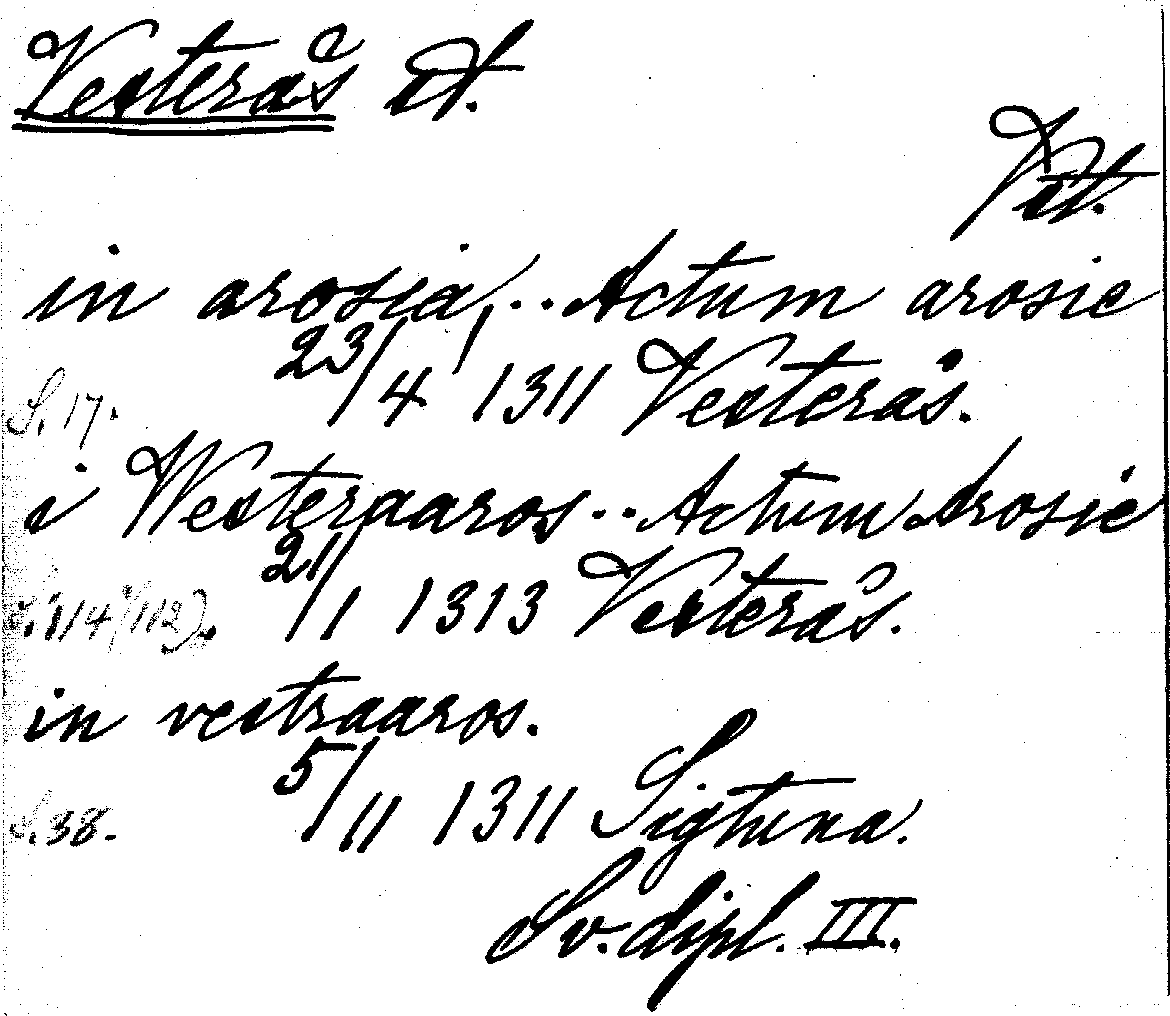 Vesterås st.
Vstl.
in arosia, .. Actum arosie
S. 17. 23/4 1311 Vesterås.
i Westeraaros .. Actum Arosie
S. 114 (112). 21/1 1313 Vesterås.
in vestraaros.
S. 38. 5/11 1311 Sigtuna.
Sv. dipl. III.